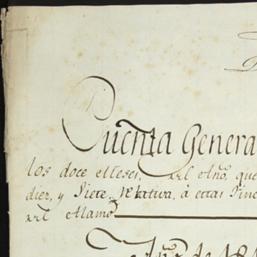 Cuenta Genera
los doce Meses, del Año, que
diez, y Siete, Relativa, á estas Finc
del Alamo
Año de 181